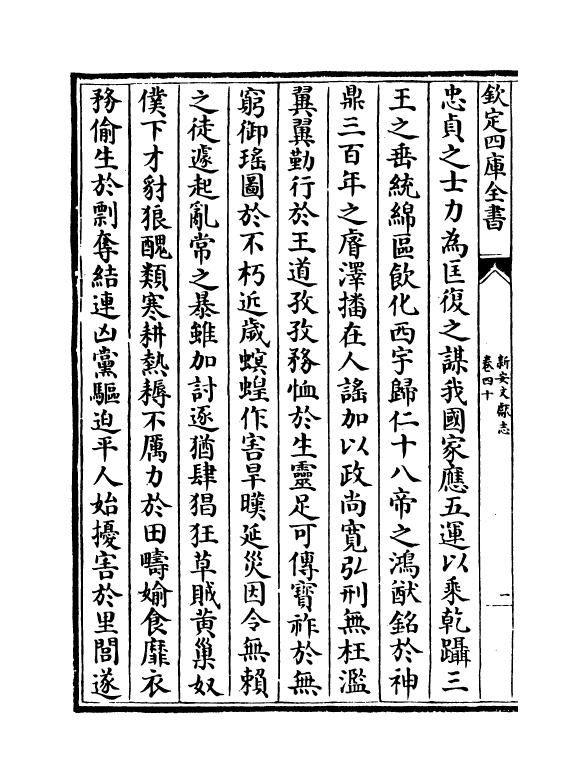 欽定四庫全書
新安文獻志
卷四十
一
忠貞之士力為匡復之謀我國家應五運以乘乾躡三
王之垂統綿區飲化西宇歸仁十八帝之鴻猷銘於神
鼎三百年之睿澤播在人謠加以政尚寛弘刑無枉濫
翼翼勤行於王道孜孜務恤於生靈足可傳寳祚於無
窮御瑤圖於不朽近歲螟蝗作害旱暵延災因令無賴
之徒遽起亂常之暴雖加討逐猶肆猖狂草賊黄巢奴
僕下才豺狼醜類寒耕熱耨不厲力於田疇媮食靡衣
務偷生於剽奪結連凶黨驅迫平人始擾害於里閭遂